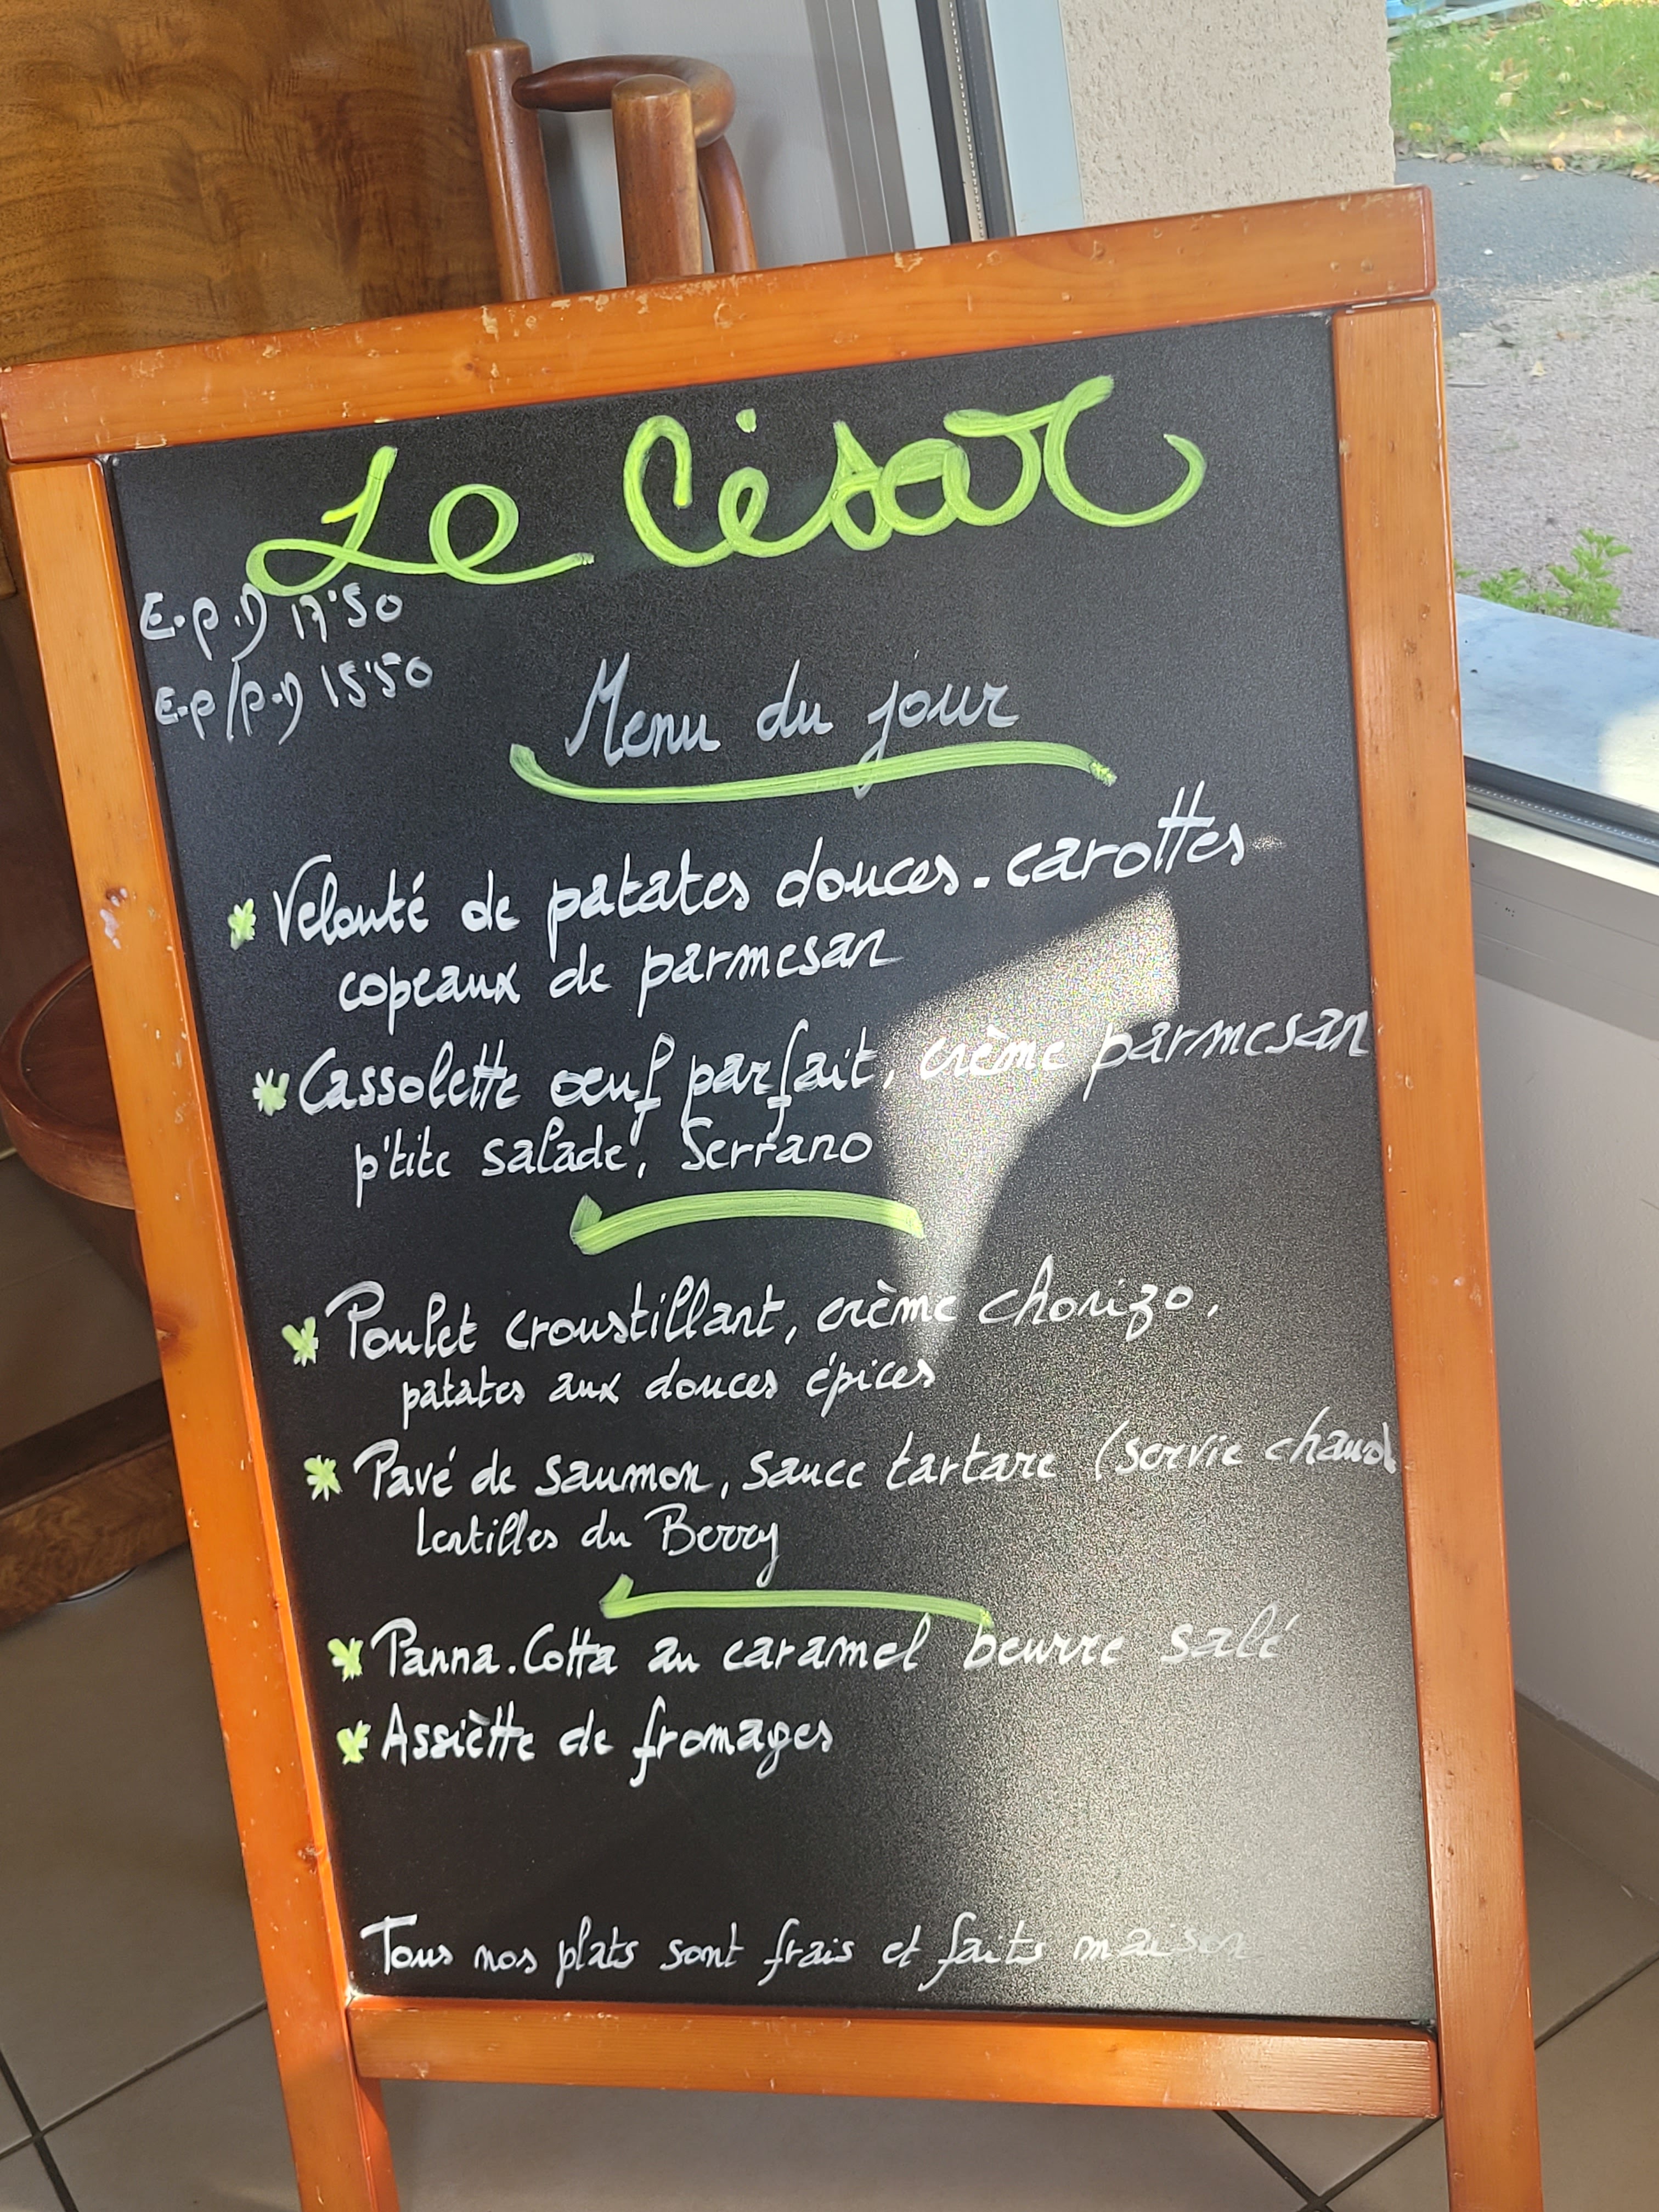 Le César
E.p.D 17'50
E.p/p.D 15'50
Menu du jour
* Velouté de patates douces-carottes
copeaux de parmesan
* Cassolette œuf parfait, crème parmesan
p'tite salade, Serrano
* Poulet croustillant, crème chorizo,
patates aux douces épices
* Pavé de saumon, sauce tartare (servie chaud
lentilles du Berry
* Panna.Cotta au caramel beurre salé
* Assiètte de fromages
Tous nos plats sont frais et faits maison